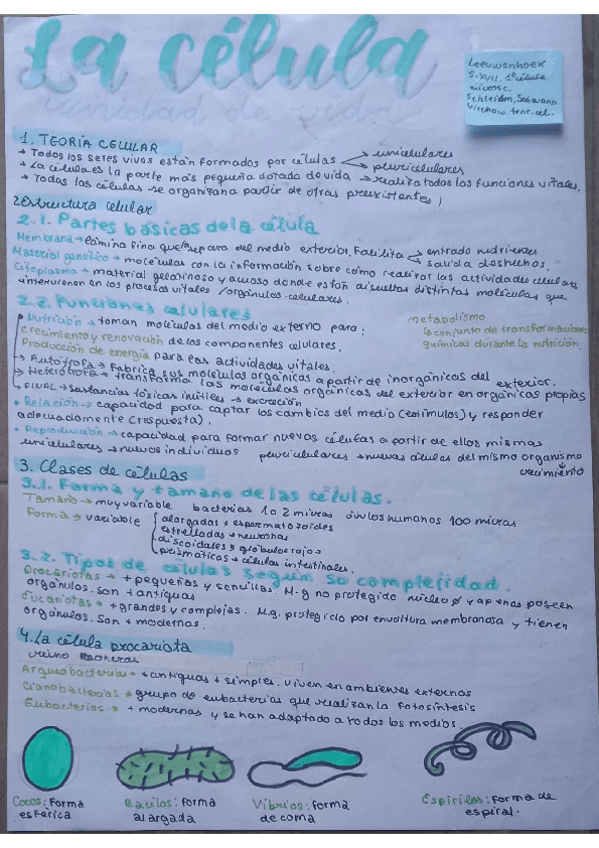 La célula
unidad de vida
Leeuwenhoek
S.XVII. 1ª célula
microsc.
Schleiden, Schwann
Virchow
1. TEORÍA CELULAR
→ Todos los seres vivos están formados por células unicelulares
pluricelulares
→ La célula es la parte más pequeña dotada de vida → realiza todas las funciones vitales.
→ Todas las células se organizan a partir de otras preexistentes
2. Estructura celular
2.1. Partes básicas de la célula
Membrana → lámina fina que separa del medio exterior. Facilita entrada nutrientes
salida deshechos.
Material genético → moléculas con la información sobre cómo realizar las actividades celulares
Citoplasma → material gelatinoso y acuoso donde están disueltas distintas moléculas que
intervienen en los procesos vitales / orgánulos celulares.
2.2. Funciones celulares
• Nutrición → toman moléculas del medio externo para:
crecimiento y renovación de los componentes celulares.
Producción de energía para las actividades vitales.
Metabolismo
conjunto de transformaciones
químicas durante la nutrición.
→ Autótrofa → fabrica sus moléculas orgánicas a partir de inorgánicas del exterior.
→ Heterótrofa → transforma las moléculas orgánicas del exterior en orgánicas propias
→ FINAL → sustancias tóxicas inútiles → excreción
• Relación → capacidad para captar los cambios del medio (estímulos) y responder
adecuadamente (respuesta).
• Reproducción → capacidad para formar nuevas células a partir de ellos mismas
unicelulares → nuevos individuos pluricelulares → nuevas células del mismo organismo
crecimiento
3. Clases de células
3.1. Forma y tamaño de las células.
Tamaño → muy variable bacterias 1 o 2 micras óvulos humanos 100 micras
Forma → variable alargadas → espermatozoides
estrelladas → neuronas
discoidales → glóbulos rojos
prismáticas → células intestinales.
3.2. Tipos de células según so complejidad.
Procariotas → + pequeñas y sencillas. M.g no protegido núcleo y apenas poseen
orgánulos. Son + antiguas
Eucariotas → + grandes y complejas. M.g. protegido por envoltura membranosa y tienen
orgánulos. Son + modernas.
4. La célula procariota
reino
Arqueobacterias → + antiguas + simples. viven en ambientes externos
Cianobacterias → grupo de eubacterias que realizan la fotosíntesis
Eubacterias → + modernas y se han adaptado a todos los medios.
Cocos: Forma
esférica
Bacilos: forma
alargada
Vibrios: forma
de coma
Espirilos: forma de
espiral.